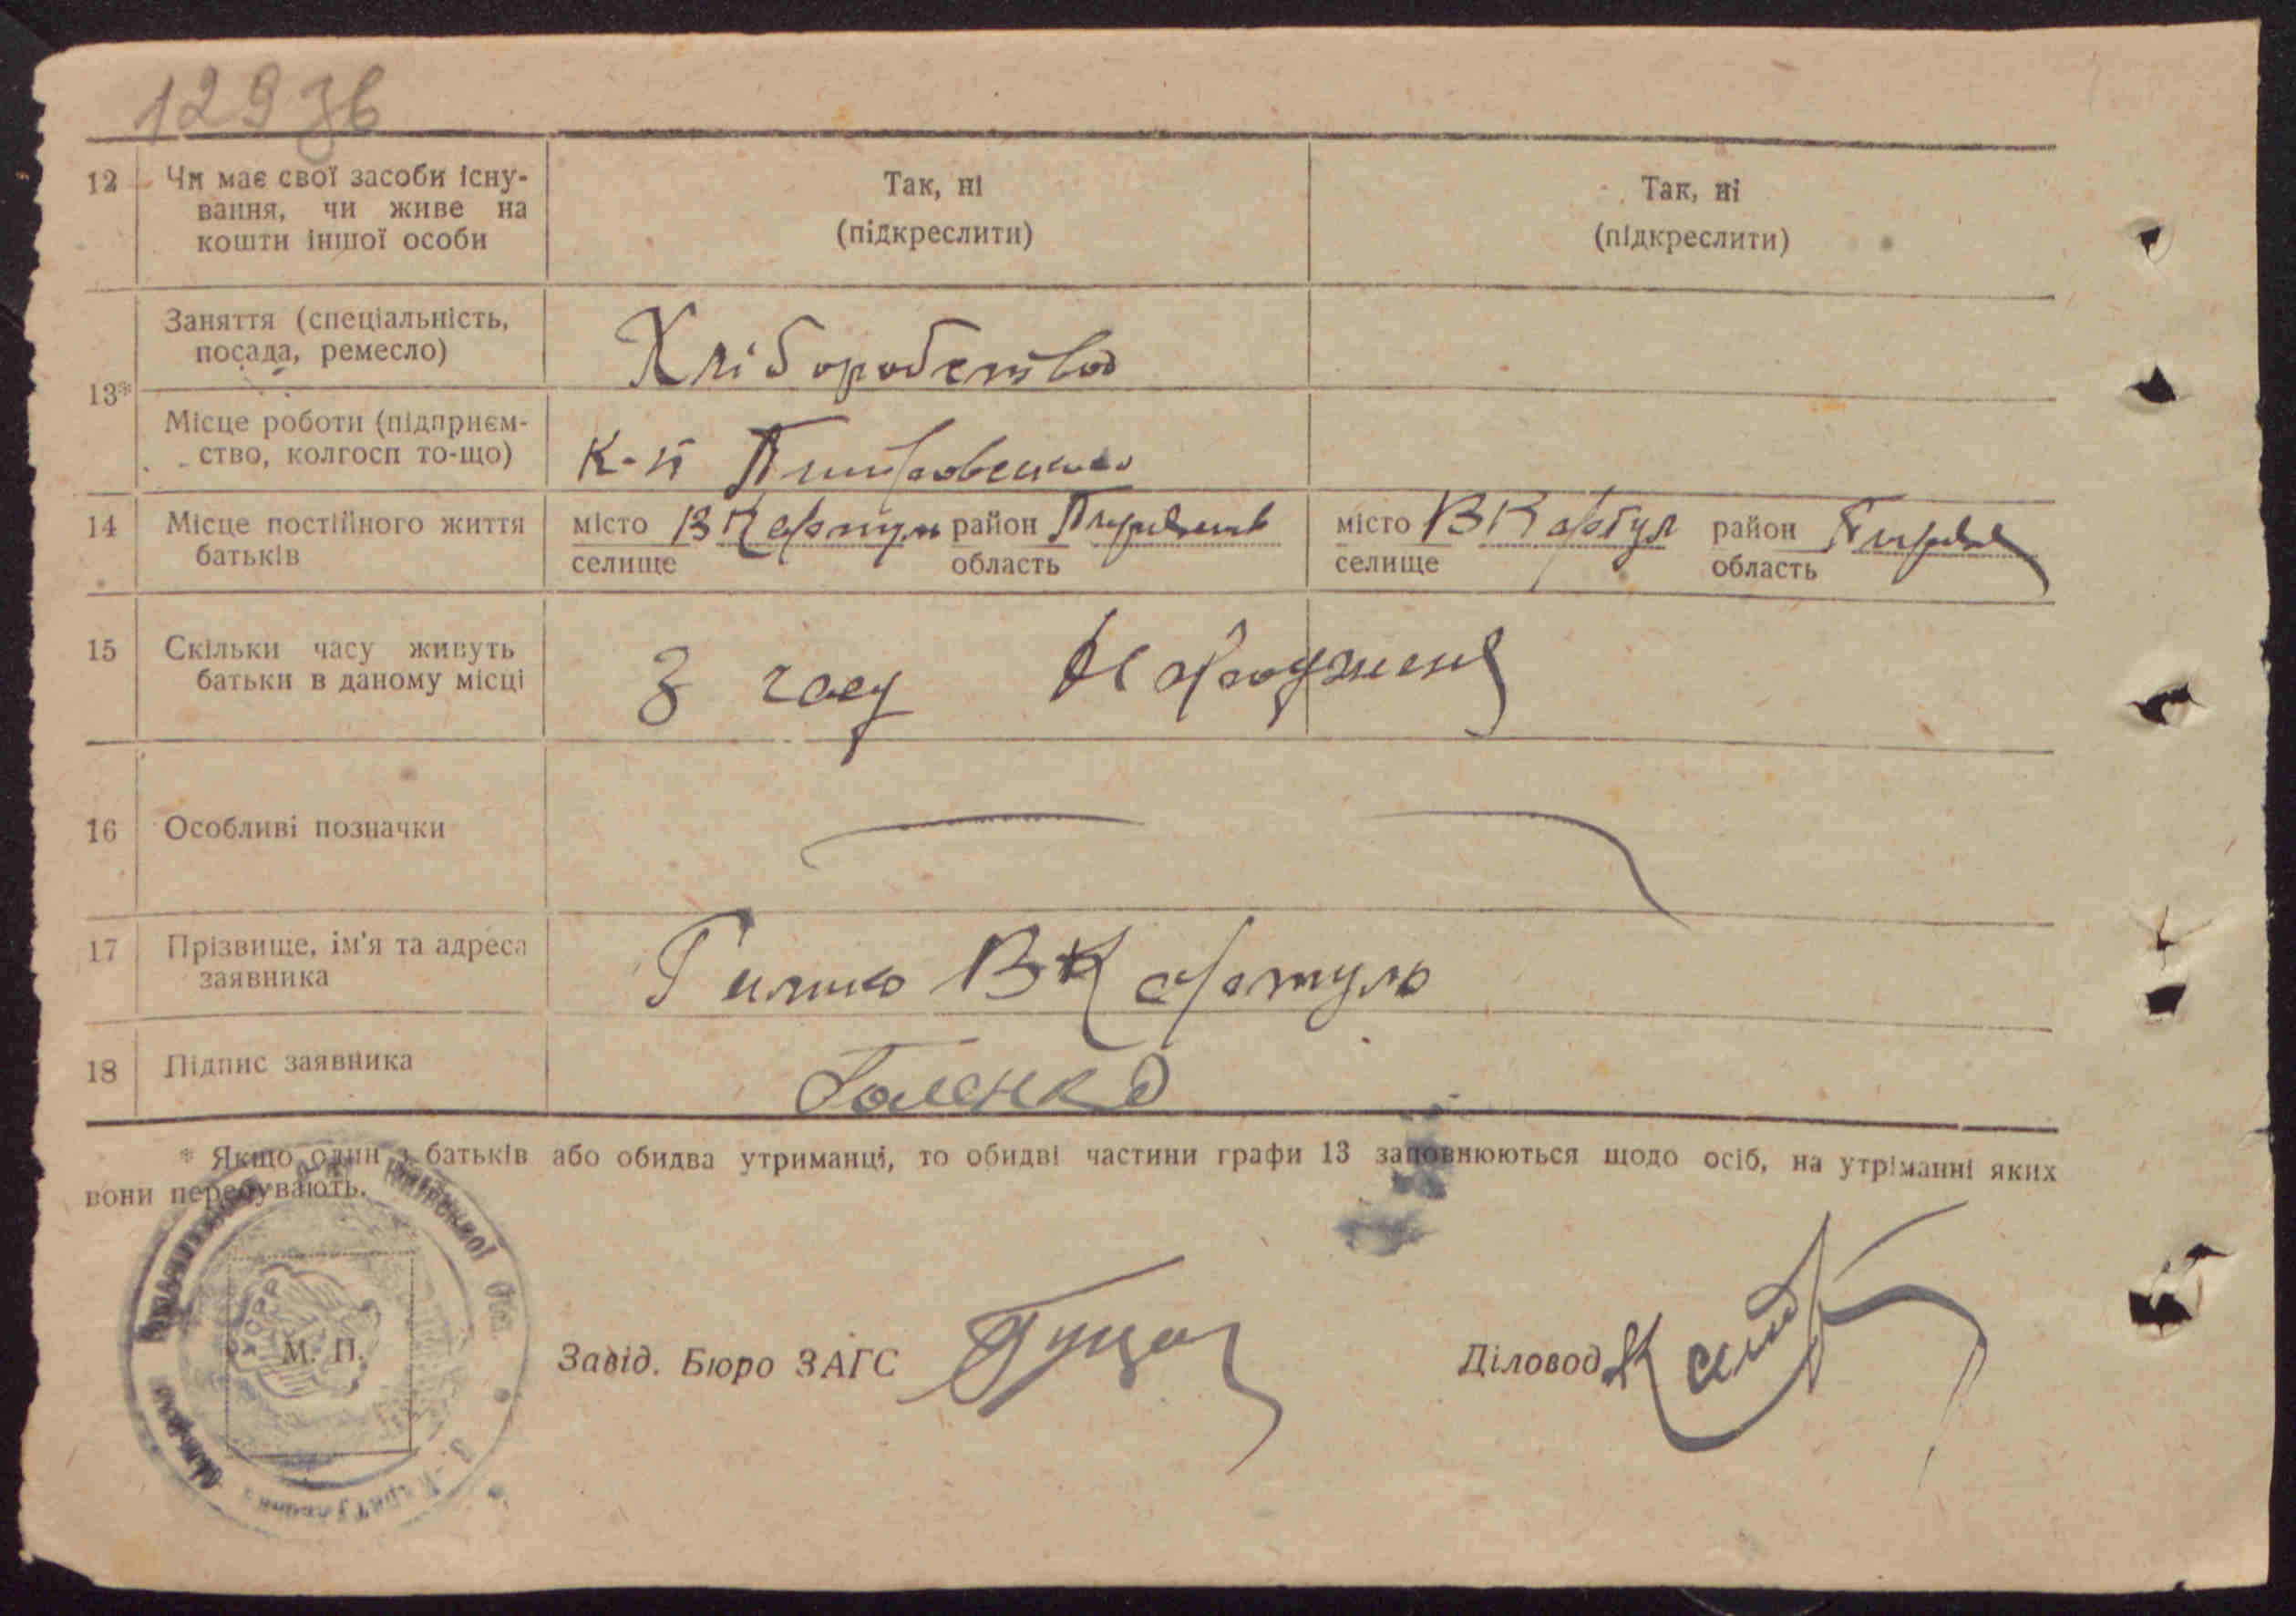 129 зв
12 Чи має свої засоби існу-
вання, чи живе на
кошти іншої особи
Так, ні
(підкреслити)
Так, ні
(підкреслити)
13*
Заняття (спеціальність,
посада, ремесло)
Хліборобство
Місце роботи (підприєм-
ство, колгосп то-що)
К-п
14 Місце постійного життя
батьків
місто В Картул район
селище область
місто В Картул район
селище область
15 Скільки часу живуть
батьки в даному місці
З часу народження
16 Особливі позначки
17 Прізвище, ім'я та адреса
заявника
В Картул
18 Підпис заявника
Галенко
* Якщо один з батьків або обидва утриманці, то обидві частини графи 13 заповнюються щодо осіб, на утріманні яких
вони перебувають.
М. П.
Завід. Бюро ЗАГС
Діловод